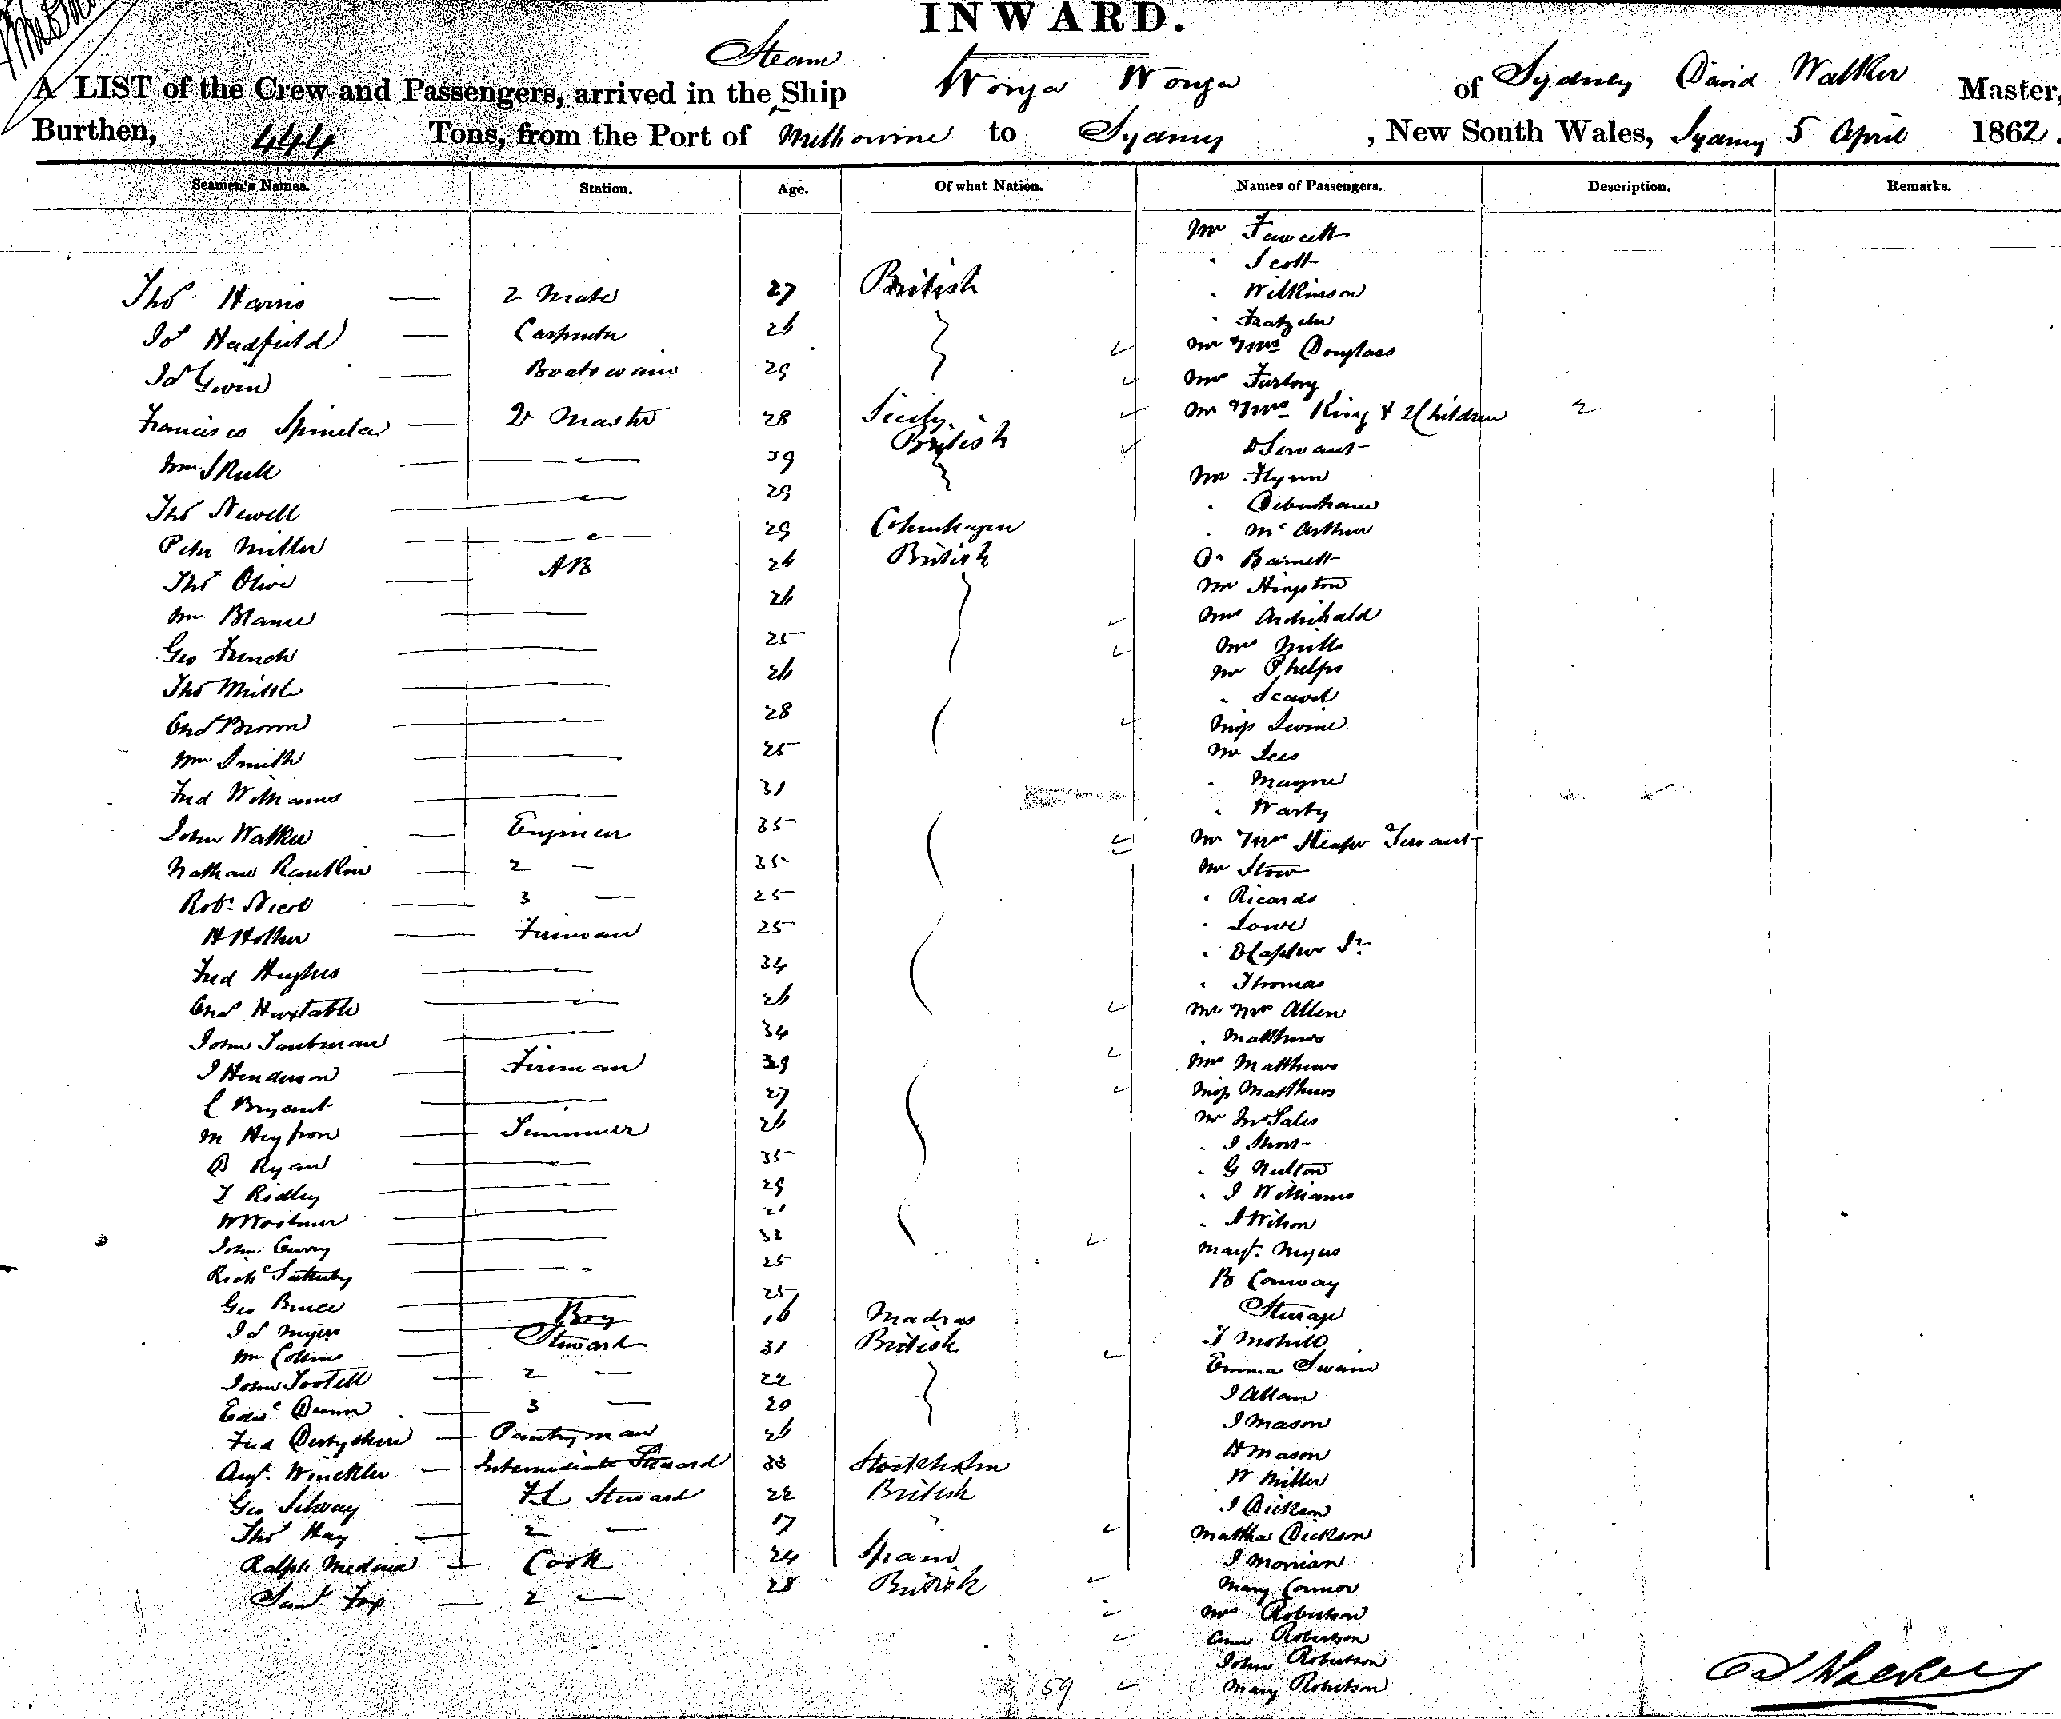 INWARD.
Steam
A LIST of the Crew and Passengers, arrived in the Ship Wonga Wonga of Sydney David Walker Master,
Burthen, 444 Tons, from the Port of Melbourne to Sydney , New South Wales, Sydney 5 April 1862.
Seamen's Names. Station. Age. Of what Nation. Names of Passengers. Description. Remarks.
Mr Fawcett
" Scott
Thos Harris 2 Mate 27 British " Wilkinson
Jos Hadfield Carpenter 26
Mr & Mrs Douglass
Jas Gwen Boatswain 29 Mrs Furlong
Francisco 2r Master 28 Sicily Mr & Mrs King & 2 Children 2
British & Servant
Wm Skull 39 Mr Flynn
Thos Newell 29 " Debenham
Peter Miller 29 Copenhagen " McArthur
Thos Olive AB 26 British Dr Barnett
Mr Kingston
Wm 26 Mrs Archibald
Geo French 25 Mrs Mills
Mr Phelps
Thos 26
Chas Brown 28 Miss Irvine
Wm Smith 25 Mr Lees
Fred Williams 31 " Mayne
" Warby
John Walker Engineer 35 Mr & Mrs & Servant
Nathan Rankin 2 35 Mr Stow
Robt Nicol 3 25 " Ricards
H Hother Fireman 25 " Lowe
Fred Hughes 34 " Thomas
Chas Huxtable 26 Mr Mrs Allen
John Taubman 34 " Matthews
J Henderson Fireman 39 Mrs Matthews
C Bryant 27 Miss Matthews
M Heffron Trimmer 26 Mr
D Ryan 35 " J Short
T Ridley 29 " G
W 21 " J Williams
John 32 " J Wilson
Richd 25 Margt Myers
Geo Bruce 25 B Conway
Jas Myers Boy 16 Madras Steerage
Wm Collins Steward 31 British
John Tootell 2 22 Emma Swain
J Allan
Edwd 3 20 J Mason
Fred Derbyshire Pantryman 26 H Mason
Augt Winckler Intermediate Steward 33 Stockholm W Miller
Geo Selway Steward 22 British J Dickson
Thos Hay 2 17 Martha Dickson
Ralph Medina Cook 24 Spain J
Saml Fox 2 28 British Mary Connor
Mrs Robertson
Ann Robertson
John Robertson
59 Mary Robertson
D Walker